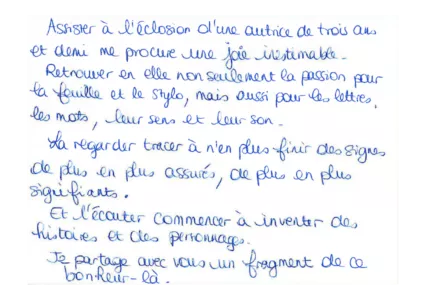 Assister à l'éclosion d'une autrice de trois ans
et demi me procure une joie inestimable.
Retrouver en elle non seulement la passion pour
la feuille et le stylo, mais aussi pour les lettres,
les mots, leur sens et leur son.
La regarder tracer à n'en plus finir des signes
de plus en plus assurés, de plus en plus
signifiants.
Et l'écouter commencer à inventer des
histoires et des personnages.
Je partage avec vous un fragment de ce
bonheur-là.